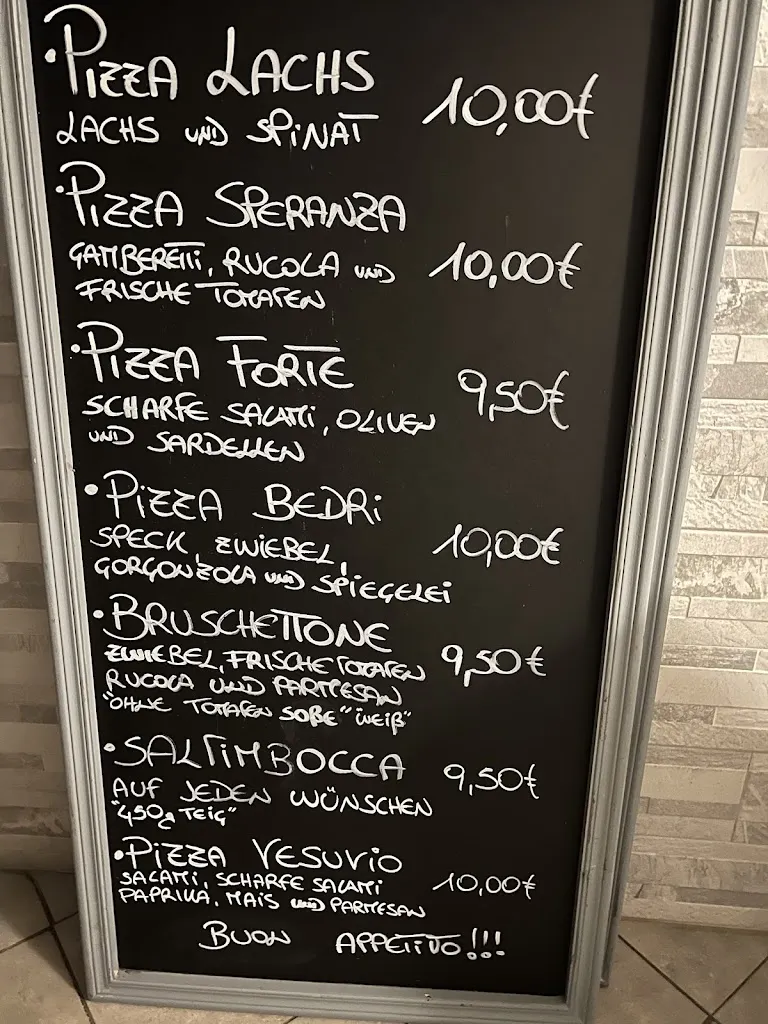 ·PIZZA LACHS
LACHS UND SPINAT 10,00€
·PIZZA SPERANZA
GAMBERETTI, RUCOLA UND 10,00€
FRISCHE TOMATEN
·PIZZA FORTE 9,50€
SCHARFE SALAMI, OLIVEN
UND SARDELLEN
·PIZZA BEDRI
SPECK, ZWIEBEL, 10,00€
GORGONZOLA UND SPIEGELEI
·BRUSCHETTONE
ZWIEBEL, FRISCHE TOMATEN 9,50€
RUCOLA UND PARMESAN
"OHNE TOMATEN SOßE" "WEIß"
·SALTIMBOCCA 9,50€
AUF JEDEN WÜNSCHEN
"450g TEIG"
·PIZZA VESUVIO
SALAMI, SCHARFE SALAMI 10,00€
PAPRIKA, MAIS UND PARMESAN
BUON APPETITO!!!